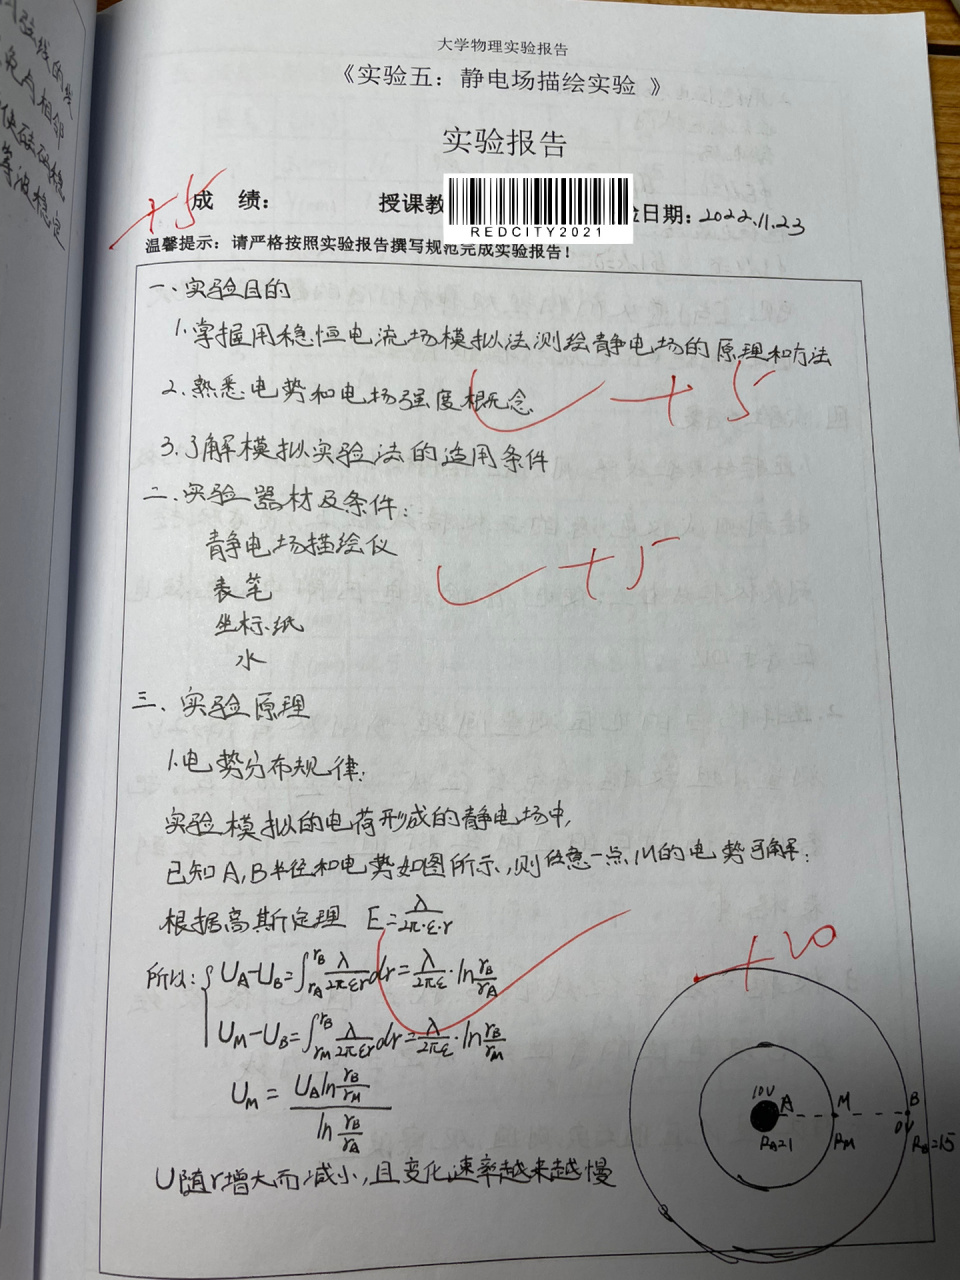 大学物理实验报告
《实验五：静电场描绘实验 》
实验报告
+5
成 绩： 授课教 REDCITY2021 验日期：2022.11.23
温馨提示：请严格按照实验报告撰写规范完成实验报告！
一、实验目的
1.掌握用稳恒电流场模拟法测绘静电场的原理和方法
2.熟悉电势和电场强度概念
+5
3.了解模拟实验法的适用条件
二.实验器材及条件：
静电场描绘仪
+5
表笔
坐标纸
水
三.实验原理
1.电势分布规律：
实验模拟的电荷形成的静电场中，
已知A,B半径和电势如图所示,则任意一点M的电势可解：
根据高斯定理 E=λ/2π·ε·r
+20
所以：{ U_A-U_B=∫_{r_A}^{r_B} λ/2πεr dr=λ/2πε·ln r_B/r_A
U_M-U_B=∫_{r_M}^{r_B} λ/2πεr dr=λ/2πε·ln r_B/r_M
U_M = U_A ln r_B/r_M / ln r_B/r_A
10V A M B
0V
R_A=1 R_M R_B=15
U随r增大而减小,且变化速率越来越慢